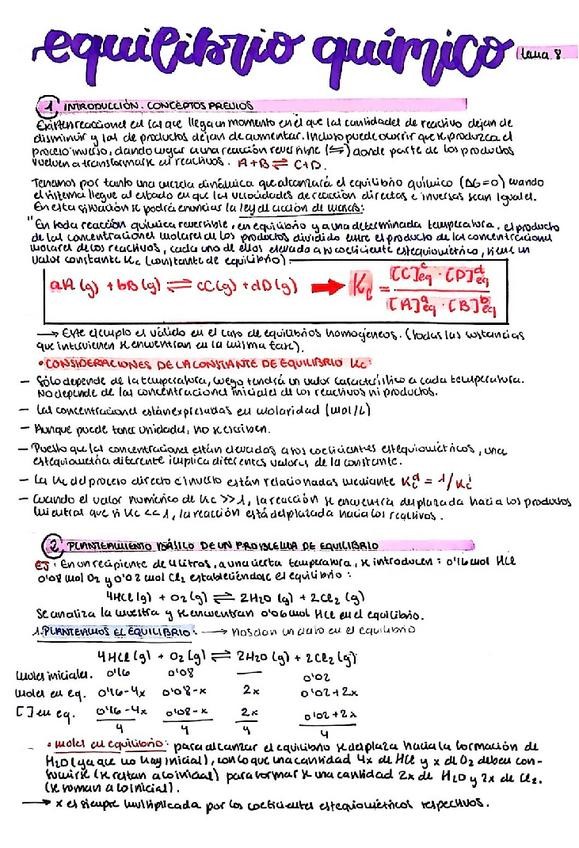 equilibrio químico tema 8.
1. INTRODUCCIÓN. CONCEPTOS PREVIOS
Existen reacciones en las que llega un momento en el que las cantidades de reactivo dejan de
disminuir y las de productos dejan de aumentar. Incluso puede ocurrir que se produzca el
proceso inverso, dando lugar a una reacción reversible (⇌) donde parte de los productos
vuelven a transformarse en reactivos. A+B ⇌ C+D.
Tenemos por tanto una mezcla dinámica que alcanzará el equilibrio químico (ΔG=0) cuando
el sistema llegue al estado en que las velocidades de reacción directas e inversas sean iguales.
En esta situación se podrá enunciar la ley de acción de masas:
"En toda reacción química reversible, en equilibrio y a una determinada temperatura, el producto
de las concentraciones molares de los productos dividido entre el producto de las concentraciones
molares de los reactivos, cada uno de ellos elevado a su coeficiente estequiométrico, tiene un
valor constante Kc (constante de equilibrio).
aA (g) + bB (g) ⇌ cC(g) + dD (g) → Kc = [C]^c eq · [D]^d eq / [A]^a eq · [B]^b eq
→ Este ejemplo es válido en el caso de equilibrios homogéneos. (Todas las sustancias
que intervienen se encuentran en la misma fase).
• CONSIDERACIONES DE LA CONSTANTE DE EQUILIBRIO Kc:
– Sólo depende de la temperatura, luego tendrá un valor característico a cada temperatura.
No depende de las concentraciones iniciales de los reactivos ni productos.
– Las concentraciones están expresadas en molaridad (mol/L)
– Aunque puede tener unidades, no se escriben.
– Puesto que las concentraciones están elevadas a los coeficientes estequiométricos, una
estequiometría diferente implica diferentes valores de la constante.
– La Kc del proceso directo e inverso están relacionadas mediante Kc^d = 1/Kc^i
– Cuando el valor numérico de Kc >> 1, la reacción se encuentra desplazada hacia los productos
mientras que si Kc << 1, la reacción está desplazada hacia los reactivos.
2. PLANTEAMIENTO BÁSICO DE UN PROBLEMA DE EQUILIBRIO
EJ: En un recipiente de 4 litros, a una cierta temperatura, se introducen: 0'16 mol HCl
0'08 mol O2 y 0'02 mol Cl2 estableciéndose el equilibrio:
4HCl(g) + O2(g) ⇌ 2H2O (g) + 2Cl2 (g)
Se analiza la muestra y se encuentran 0'06 mol HCl en el equilibrio.
1. PLANTEAMOS EL EQUILIBRIO: → Nos dan un dato en el equilibrio
4HCl(g) + O2 (g) ⇌ 2H2O (g) + 2Cl2(g)
Moles iniciales. 0'16 0'08 — 0'02
moles en eq. 0'16-4x 0'08-x 2x 0'02+2x
[ ] en eq. 0'16-4x/4 0'08-x/4 2x/4 0'02+2x/4
• moles en equilibrio: para alcanzar el equilibrio se desplaza hacia la formación de
H2O (ya que no hay inicial), con lo que una cantidad 4x de HCl y x de O2 deben con-
sumirse (se restan a lo inicial) para formarse una cantidad 2x de H2O y 2x de Cl2.
(se suman a lo inicial).
→ x es siempre multiplicada por los coeficientes estequiométricos respectivos.